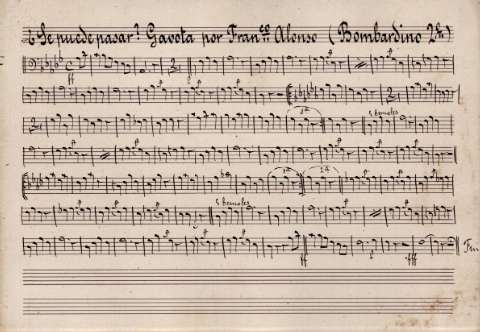 ¿Se puede pasar? Gavota por Fran.co Alonso (Bombardino 2º)
ff
2
2
1ª
5 bemoles
1ª
2ª
5 bemoles
ff
fff
Fin